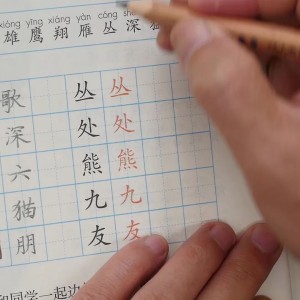 xióng yīng xiáng yàn cóng shēn
雄 鹰 翔 雁 丛 深
歌 丛 丛
深 处 处
六 熊 熊
猫 九 九
朋 友 友
和同学一起边